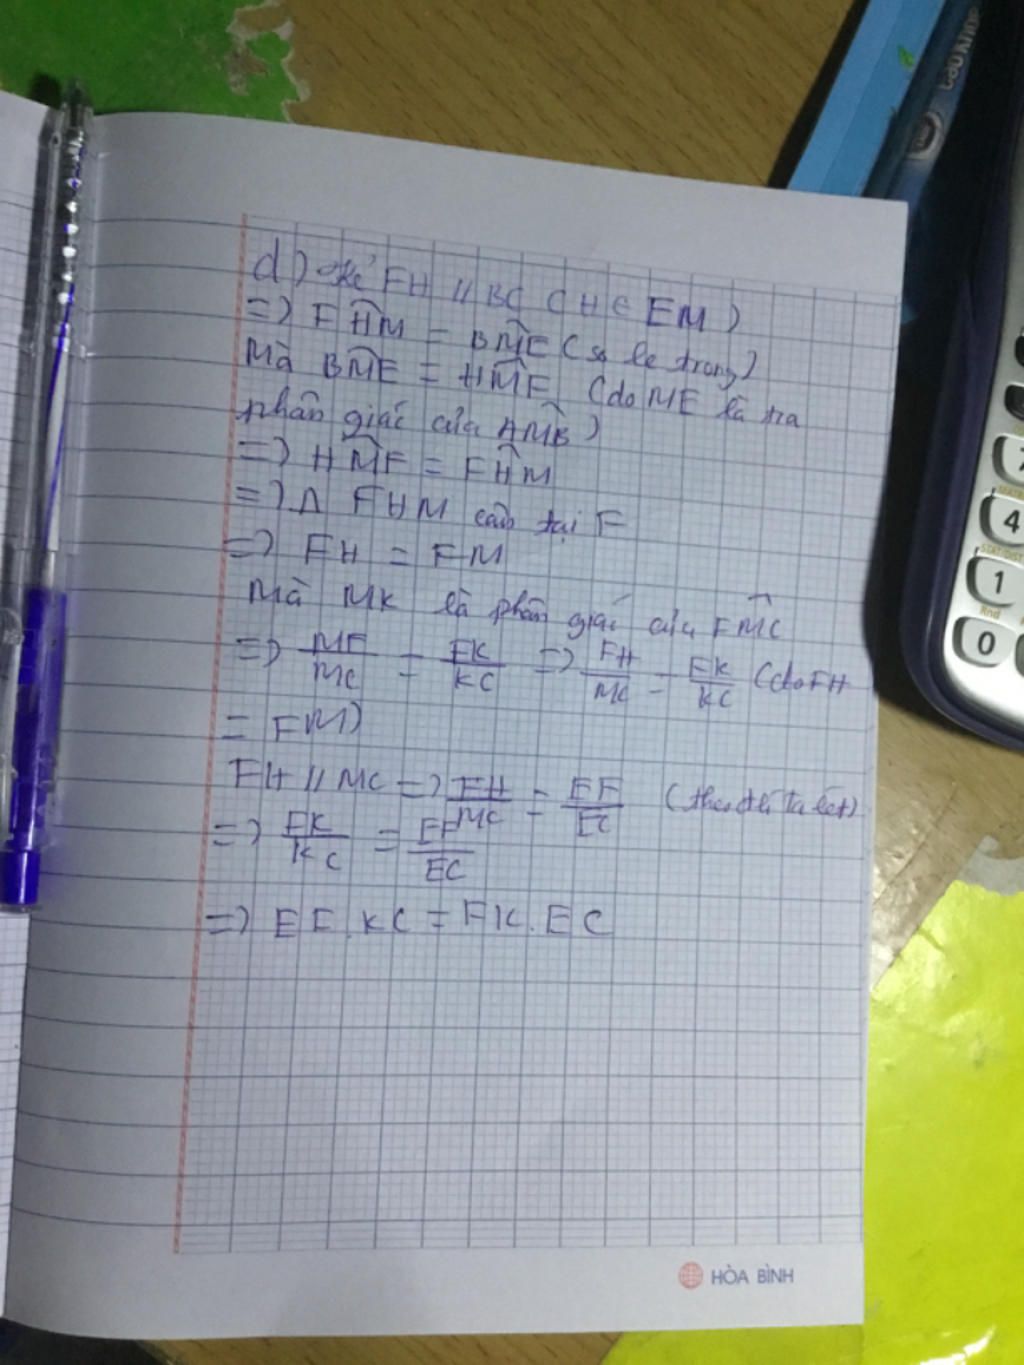 d) Kẻ FH // BC ( H ∈ EM )
=> FĤM = BM̂E ( so le trong )
Mà BM̂E = HM̂F ( do ME là tia
phân giác của AM̂B )
=> HM̂F = FĤM
=> Δ FHM cân tại F
=> FH = FM
Mà MK là phân giác của FM̂C
=> MF/MC = FK/KC => FH/MC = FK/KC ( do FH
= FM )
FH // MC => FH/MC = EF/EC ( theo đlí Ta lét )
=> FK/KC = EF/EC
=> EF . KC = FK . EC
HÒA BÌNH
7
4
1
0
Rnd